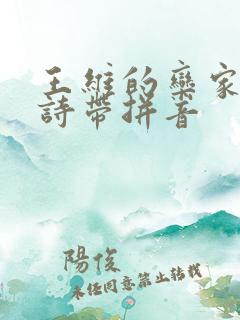 王維的欒家
詩帶拼音
陽俊
未经同意禁止转载